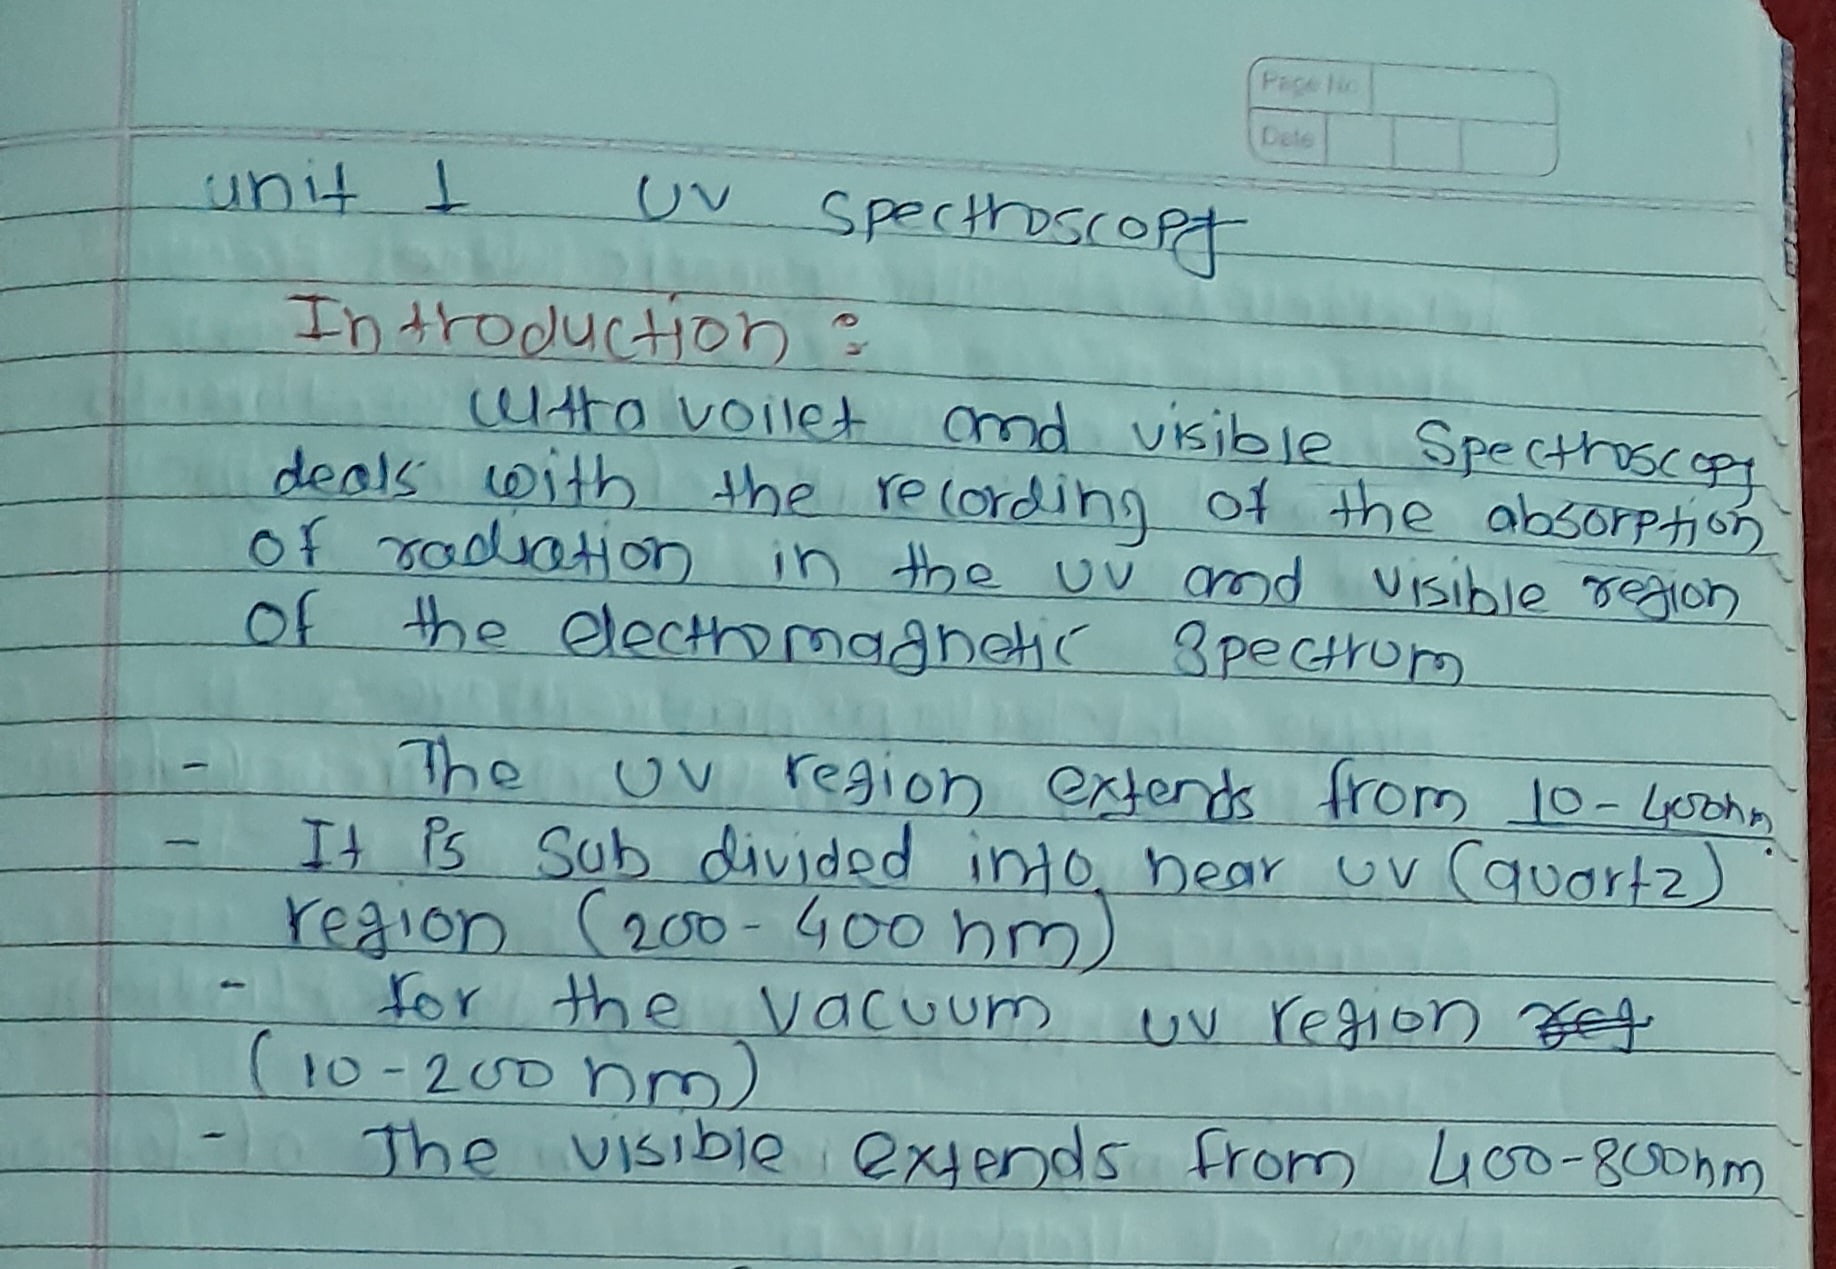 Page No
Date
unit 1 UV Spectroscopy
Introduction :
Ultra voilet and visible Spectroscopy
deals with the recording of the absorption
of radiation in the UV and visible region
of the electromagnetic Spectrum
- The UV region extends from 10-400nm.
- It is Sub divided into near UV (quartz)
region (200-400nm)
- for the vacuum uv region
(10-200nm)
- The visible extends from 400-800nm